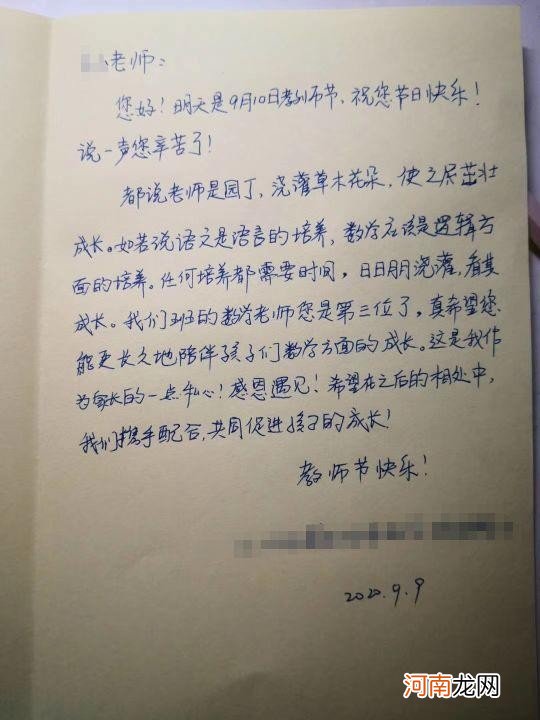 老师：
您好！明天是9月10日教师节，祝您节日快乐！
说一声您辛苦了！
都说老师是园丁，浇灌草木花朵，使之尽茁壮
成长。如若说语文是语言的培养，数学应该是逻辑方
面的培养。任何培养都需要时间，日日月月浇灌，看其
成长。我们3班的数学老师您是第三位了，真希望您
能更长久地陪伴孩子们数学方面的成长。这是我作
为家长的一点私心！感恩遇见！希望在之后的相处中，
我们携手配合，共同促进孩子的成长！
教师节快乐！
2020.9.9
河南龙网